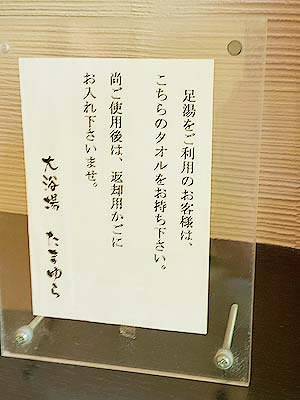 足湯をご利用のお客様は、
こちらのタオルをお持ち下さい。
尚ご使用後は、返却用かごに
お入れ下さいませ。
大浴場 たまゆら